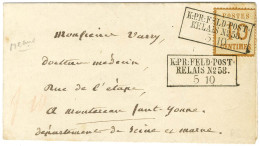 K:PR:FELD-POST-
RELAIS No 38.
POSTES
CENTIMES
Monsieur Vavry,
K:PR:FELD-POST-
RELAIS No 38.
5 10
docteur médecin,
Rue de l'étape,
à Montereau faut-Yonne,
département de Seine et Marne.